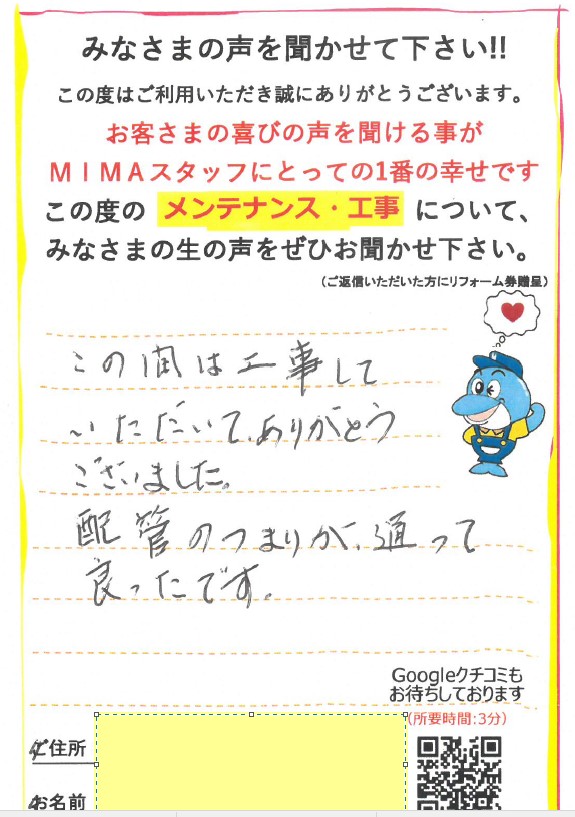 みなさまの声を聞かせて下さい!!
この度はご利用いただき誠にありがとうございます。
お客さまの喜びの声を聞ける事が
MIMAスタッフにとっての1番の幸せです
この度の メンテナンス・工事 について、
みなさまの生の声をぜひお聞かせ下さい。
(ご返信いただいた方にリフォーム券贈呈)
この間は工事して
いただいて、ありがとう
ございました。
配管のつまりが、通って
良ったです。
Googleクチコミも
お待ちしております
(所要時間:3分)
ご住所
お名前